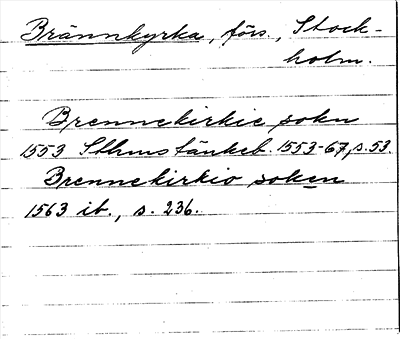 Brännkyrka, förs., Stock-
holm.
Brennekirkie sokn
1553 Sthms tänkeb. 1553-67, s. 53.
Brennekirkio soken
1563 ib., s. 236.